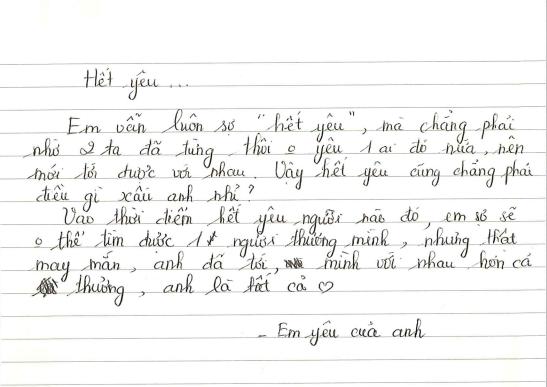 Hết yêu ...
Em vẫn luôn sợ "hết yêu", mà chẳng phải
nhờ 2 ta đã từng thôi o yêu 1 ai đó nữa, nên
mới tới được với nhau. Vậy hết yêu cũng chẳng phải
điều gì xấu anh nhỉ?
Vào thời điểm hết yêu người nào đó, em sợ sẽ
o thể tìm được 1 người thương mình, nhưng thật
may mắn, anh đã tới, mình với nhau hơn cả
thương, anh là tất cả ♡
- Em yêu của anh